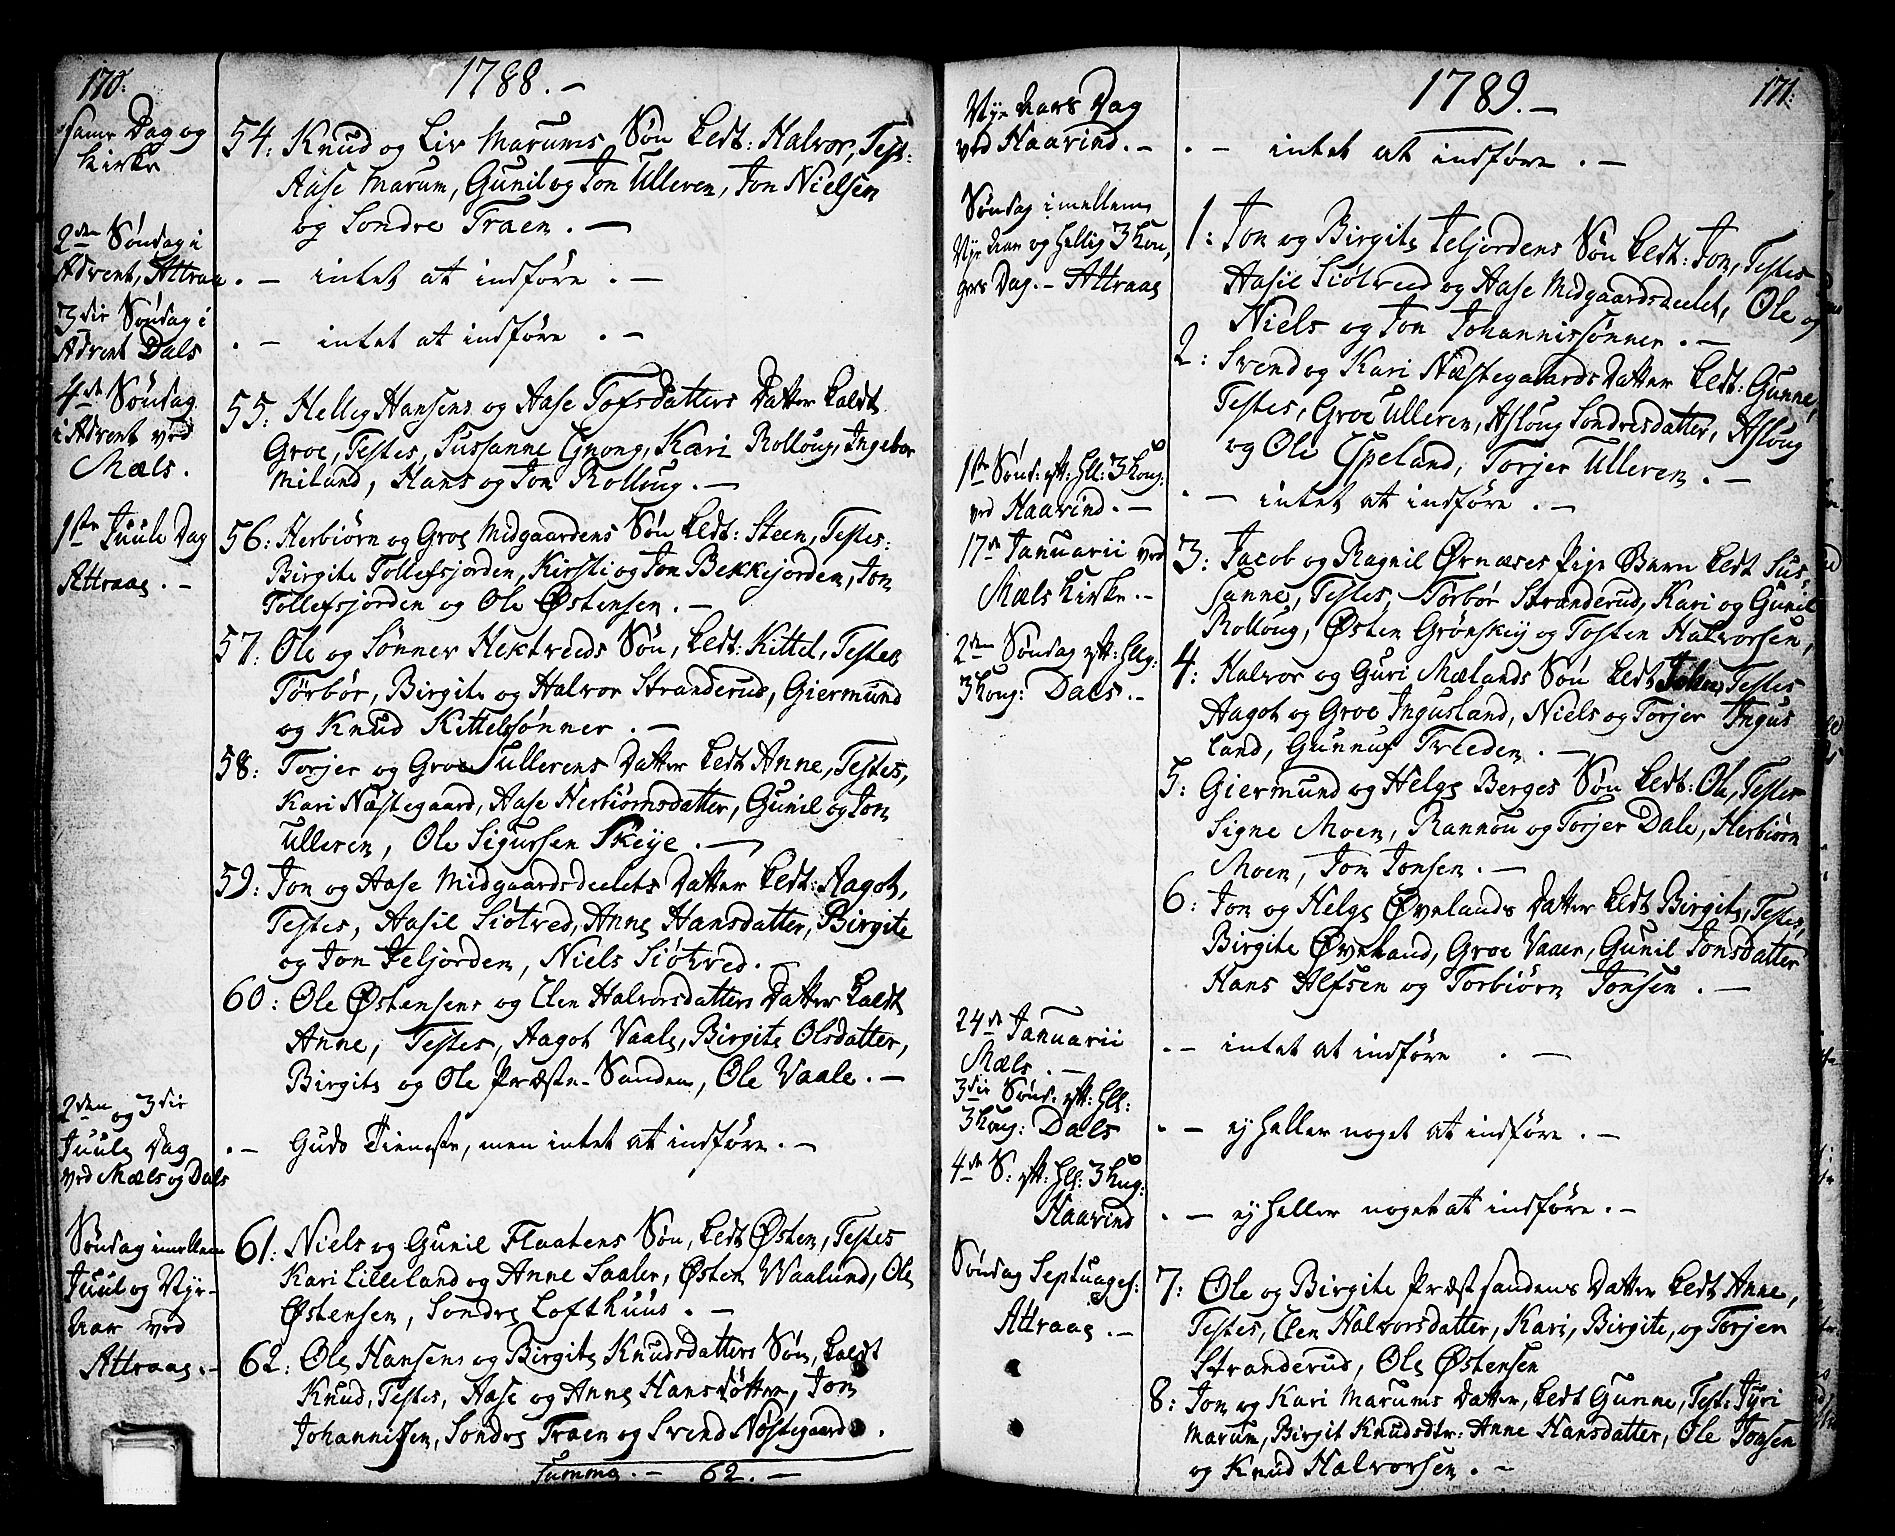 170.
1788. –
same Dag og
Kirke
54: Knud og Liv Marums Søn kedt: Halvor, Test:
Aase Marum, Gunil og Jon Ulleren, Jon Nielsen
og Sondre Traen. –
2den Søndag i
Advent, Attraa
. – intet at indføre. –
3die Søndag i
Advent Dals
. – intet at indføre . –
4de Søndag
i Advent ved
Mæls.
55: Helleg Hansens og Aase Tofsdatters Datter kaldt
Groe, Testes, Sussanne Gnong, Kari Rolloug, Ingebor
Miland, Hans og Jon Rolloug. –
1ste Juule Dag
Attraae. –
56: Herbiørn og Groe Midgaardens Søn kedt: Steen, Testes:
Birgite Tollefsjorden, Kirsti og Jon Bekkejorden, Jon
Tollefsjorden og Ole Østensen. –
57: Ole og Sønnev Hektveeds Søn, kedt: Kittel, Testes
Torbør, Birgite og Halvor Stranderud, Giermund
og Knud Kittelsønner. –
58: Torjer og Groe Sullerens Datter kedt Anne, Testes,
Kari Næstegaard, Aase Herbiørnsdatter, Gunil og Jon
Ulleren, Ole Sigursen Skeye. –
59: Jon og Aase Midgaardsdeelets Datter kedt: Aagot,
Testes, Aasil Siøtved, Anne Hansdatter, Birgite
og Jon Jeljorden, Niels Siøtved. –
60: Ole Østensens og Elen Halvorsdatters Datter kaldt
Anne, Testes, Aagot Vaale, Birgite Olsdatter,
Birgite og Ole Præste-Sanden, Ole Vaale. –
2den og 3die
Juule Dag
ved Mæls og Dals
. – Guds Tieneste, men intet at indføre. –
Søndag imellem
Juul og Nye-
Aar ved
Attraae. –
61: Niels og Gunil Flaatens Søn, kedt Østen, Testes
Kari Lilleland og Anne Saaler, Østen Waalund, Ole
Østensen, Sondre Lofthuus. –
62: Ole Hansens og Birgite Knudsdatters Søn, kaldt
Knud, Testes, Aase og Anne Hansdøtter, Jon
Johannissen, Sondre Traen og Svend Næstegaard .
Summa. – 62. –
1789. –
171.
Nye Aars Dag
ved Haavind. –
. – intet at indføre . –
Søndag imellem
Nye Aar og Hellig 3 Kon,
gers Dag. – Attraae
1: Jon og Birgite Jeljordens Søn kedt: Jon, Testes
Aasil Siøtveed og Aase Midgaardsdeelet, Ole og
Niels og Jon Johannissønner. –
2: Svend og Kari Næstegaards Datter kedt: Gunne,
Testes, Groe Ulleren, Asloug Sondresdatter, Asloug
og Ole Espeland, Torjer Ulleren. –
1ste Sønd: eft: Hll: 3 Kong:
ved Haavind. –
. – intet at indføre . –
17de Januarii ved
Mæls Kirke. –
3: Jacob og Ragnil Ørnæses Pige Barn kedt Sus-
sanne, Testes, Torbør Stranderud, Kari og Gunil
Rolloug, Østen Grønskey og Tosten Halvorsen,
2den Søndag eft: Hllg:
3 Kong: Dals. –
4: Halvor og Guri Mælands Søn kedt John, Testes
Aagot og Groe Ingusland, Niels og Torjer Ingus
land, Gunnuf Treeden. –
5: Giermund og Helge Berges Søn kedt: Ole, Testes
Signe Moen, Rannou og Torjer Dale, Herbiørn
Moen, Jon Jonsen. –
6: Jon og Helge Øvelands Datter kedt Birgite, Testes,
Birgite Øveland, Groe Vaaer, Gunil Jonsdatter
Hans Alfsen og Torbiørn Jonsen . –
24de Januarii
Mæls . –
. – intet at indføre . –
3die Sønd. eft: Hll:
3 Kong: Dals
. – ej heller noget at indføre. –
4de S: eft: Hll: 3 Kug:
Haavind
. – ej heller noget at indføre. –
Søndag Septuages:
Attraae. –
7: Ole og Birgite Præstsandens Datter kedt Anne,
Testes, Elen Halvorsdatter, Kari, Birgite, og Torjer
Stranderud, Ole Østensen
8: Jon og Kari Marums Datter, kedt Gunne, Test: Jyri
Marum, Birgit Knudsdtr: Anne Hansdatter, Ole Jonsen
og Knud Halvorsen. –